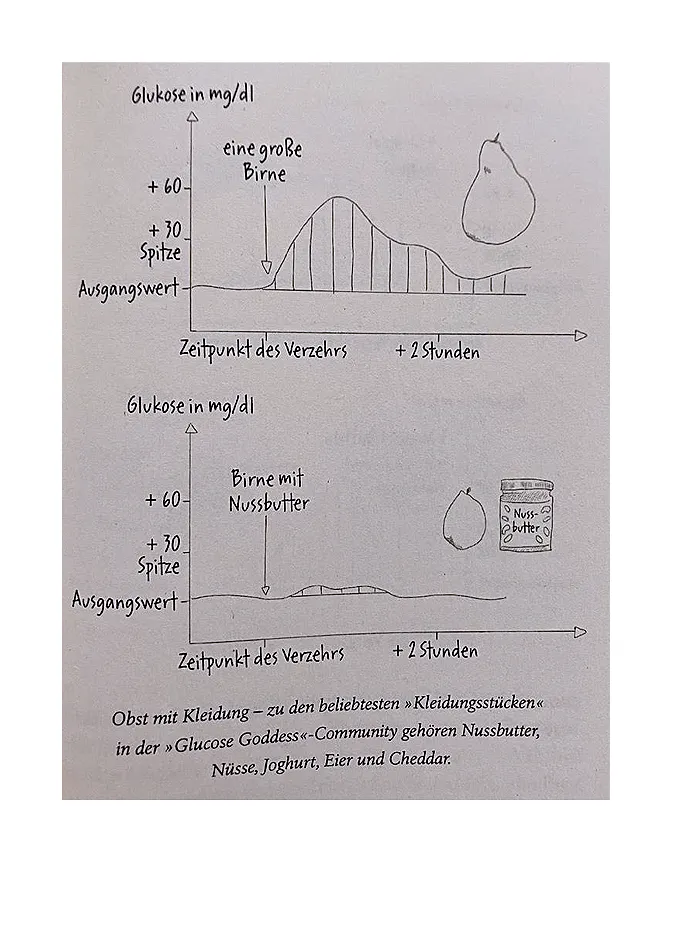 Glukose in mg/dl
eine große
Birne
+ 60
+ 30
Spitze
Ausgangswert
Zeitpunkt des Verzehrs
+ 2 Stunden
Glukose in mg/dl
Birne mit
Nussbutter
+ 60
Nuss-
butter
+ 30
Spitze
Ausgangswert
Zeitpunkt des Verzehrs
+ 2 Stunden
Obst mit Kleidung – zu den beliebtesten »Kleidungsstücken«
in der »Glucose Goddess«-Community gehören Nussbutter,
Nüsse, Joghurt, Eier und Cheddar.